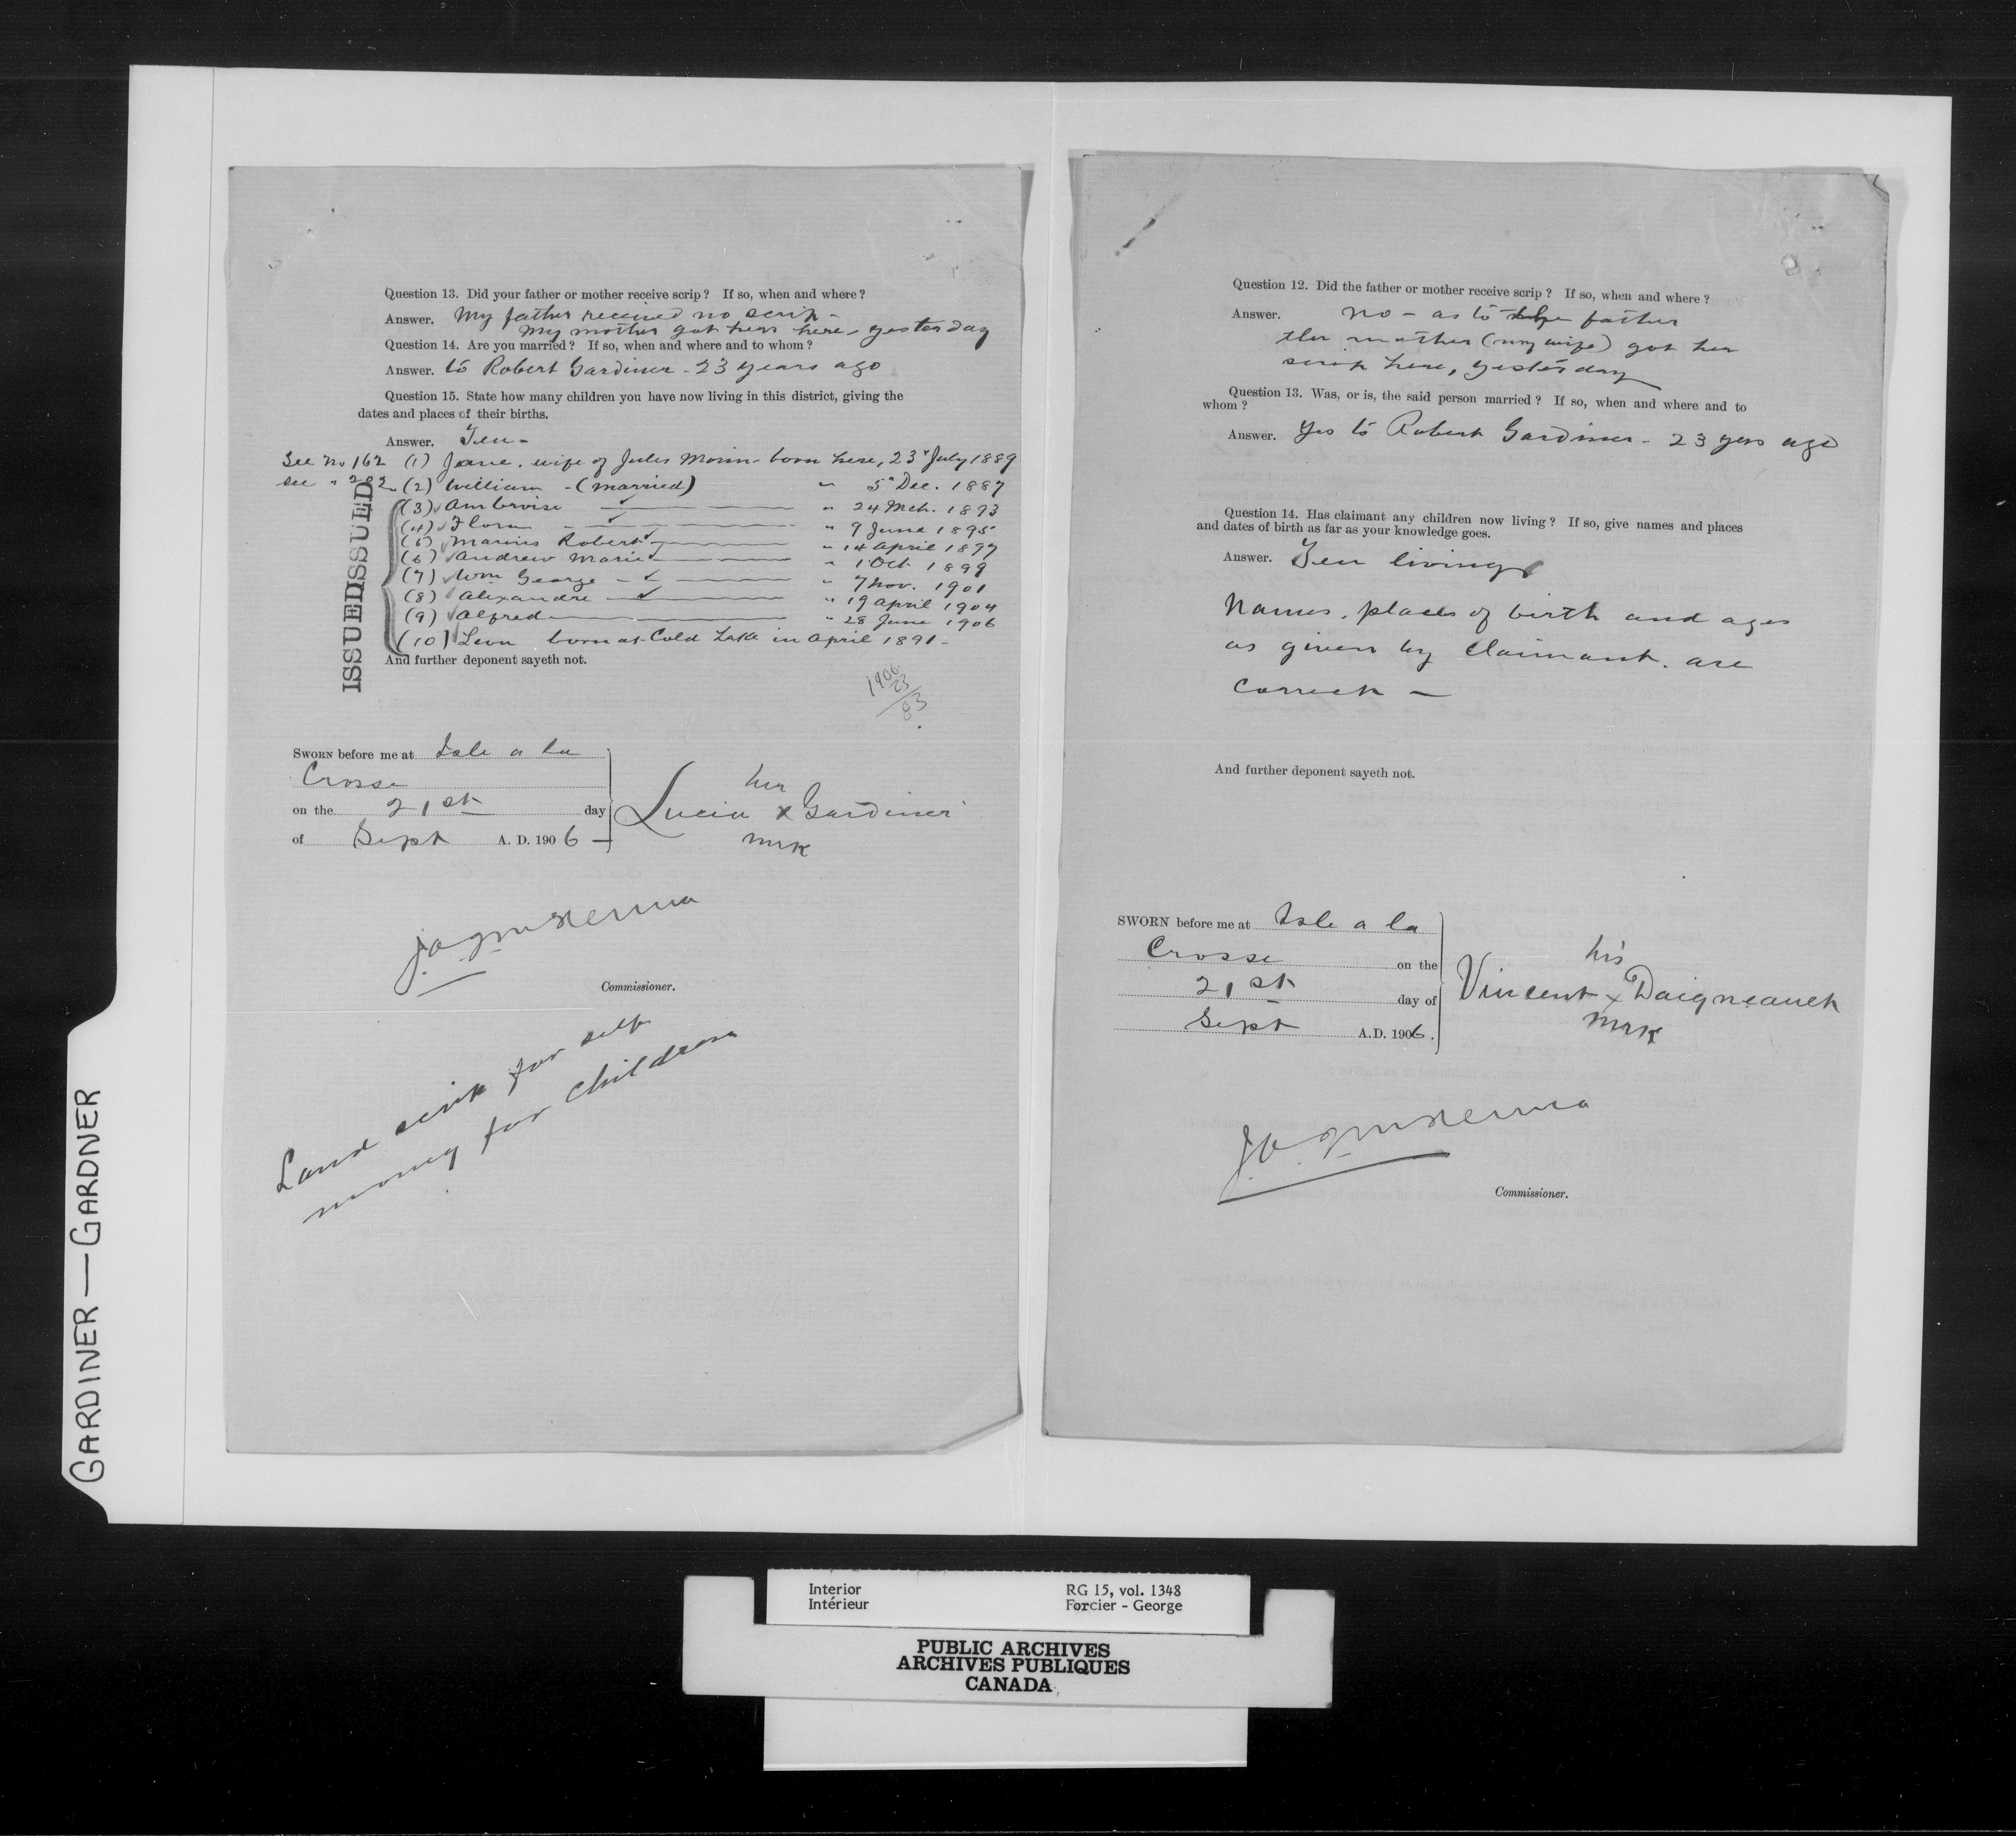 Question 13. Did your father or mother receive scrip? If so, when and where?
Answer. My father received no scrip -
My mother got hers here - yesterday
Question 14. Are you married? If so, when and where and to whom?
Answer. to Robert Gardiner - 23 years ago
Question 15. State how many children you have now living in this district, giving the
dates and places of their births.
Answer. Ten -
See No 162 (1) Jane. wife of Jules Morin - born here, 23 July 1889
see " 202 (2) William - (married) " 5 Dec. 1887
(3) Ambroise " 24 Mch. 1893
(4) Flora " 9 June 1895
(5) Marius Robert " 14 April 1897
(6) Andrew Marie " 1 Oct. 1899
(7) Wm George " 7 Nov. 1901
(8) Alexandre " 19 April 1904
(9) Alfred " 28 June 1906
(10) Leon born at Cold Lake in April 1891 -
ISSUED ISSUED
And further deponent sayeth not.
1906
23
83
SWORN before me at Isle a la
Crosse
on the 21st day
of Sept A. D. 1906
her
Lucia x Gardiner
mrk
Commissioner.
Land scrip for self
money for children
Question 12. Did the father or mother receive scrip? If so, when and where?
Answer. No - as to father
the mother (my wife) got her
scrip here, yesterday
Question 13. Was, or is, the said person married? If so, when and where and to
whom?
Answer. Yes to Robert Gardiner - 23 yrs ago
Question 14. Has claimant any children now living? If so, give names and places
and dates of birth as far as your knowledge goes.
Answer. Ten living
Names, places of birth and ages
as given by claimant. are
correct -
And further deponent sayeth not.
SWORN before me at Isle a la
Crosse on the
21st day of
Sept A.D. 1906.
his
Vincent x Daigneault
mrk
Commissioner.
GARDINER — GARDNER
Interior RG 15, vol. 1348
Intérieur Forcier - George
PUBLIC ARCHIVES
ARCHIVES PUBLIQUES
CANADA